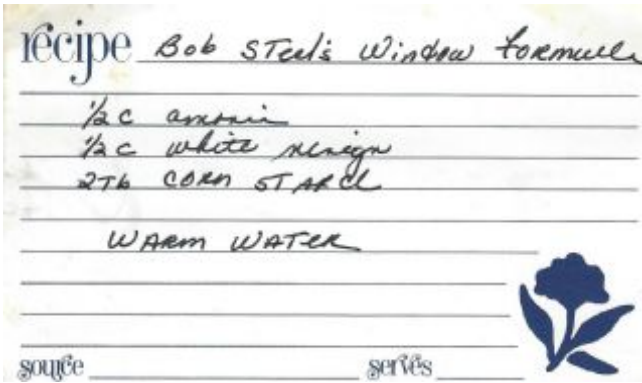 recipe Bob Steel's Window Formula
1/2 c amonia
1/2 c white vinegar
2Tb CORN STARCH
WARM WATER
source serves